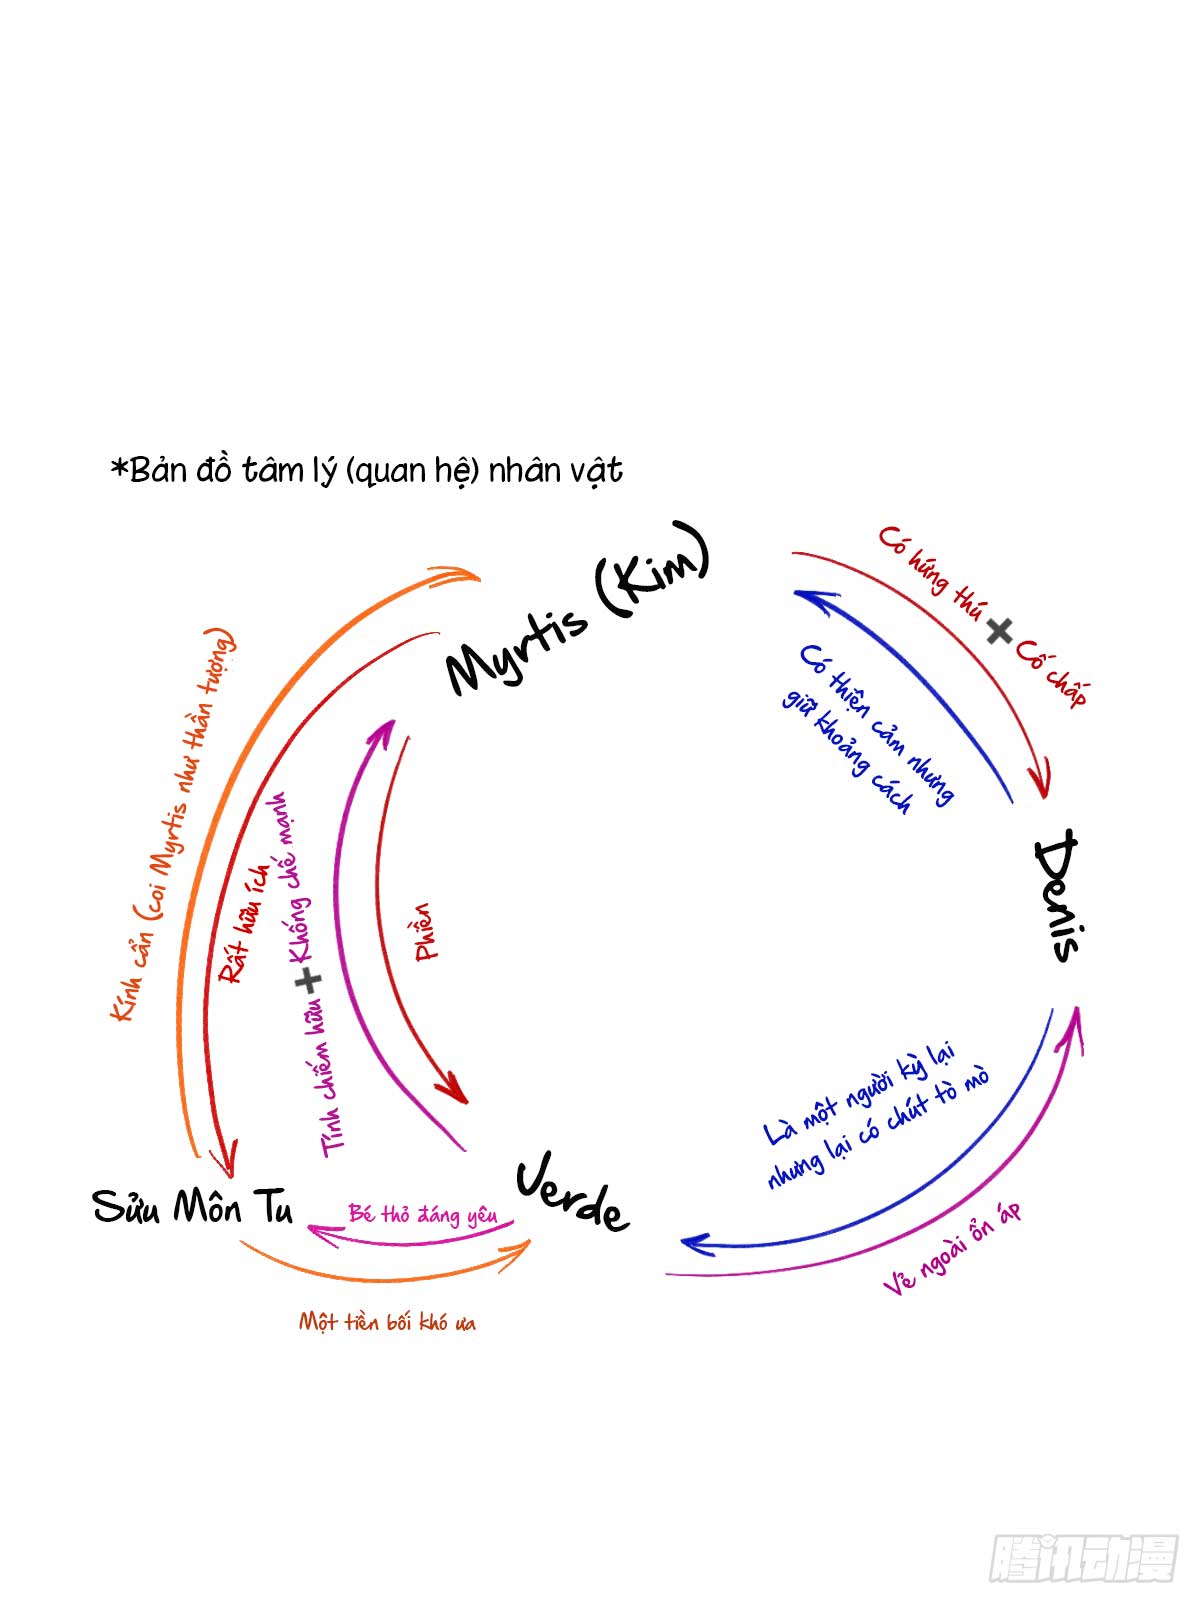 *Bản đồ tâm lý (quan hệ) nhân vật
Myrtis (Kim)
Có hứng thú + Cố chấp
Có thiện cảm nhưng
giữ khoảng cách
Kính cẩn (coi Myrtis như thần tượng)
Rất hữu ích
Tính chiếm hữu + Khống chế mạnh
Phiền
Denis
Là một người kỳ lại
nhưng lại có chút tò mò
Vẻ ngoài ổn áp
Sửu Môn Tu
Bé thỏ đáng yêu
Verde
Một tiền bối khó ưa
腾讯动漫